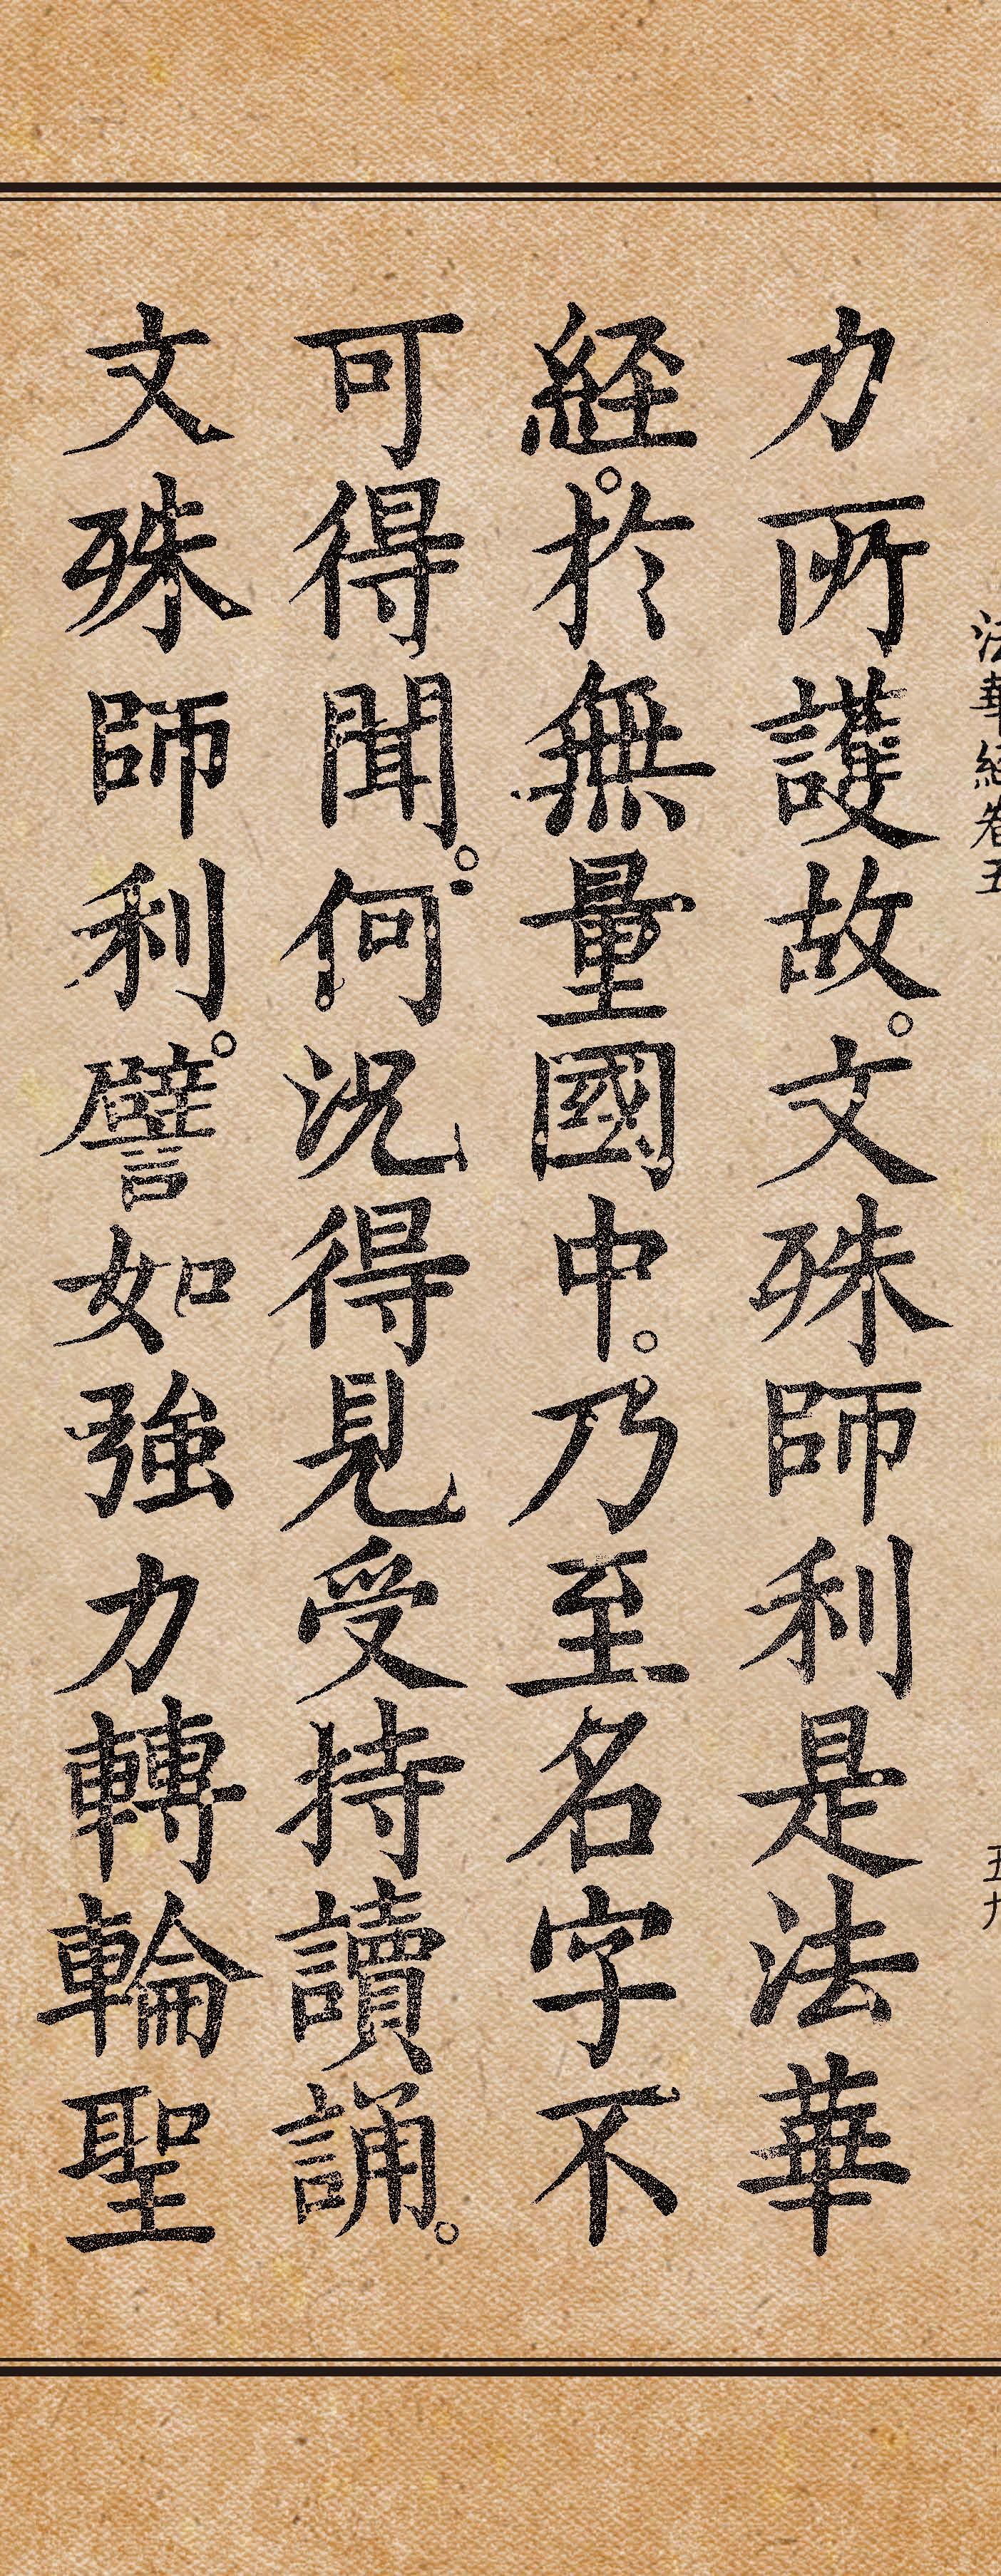 法華経巻五
五九
力所護故。文殊師利是法華
経。於無量國中。乃至名字不
可得聞。何況得見受持讀誦。
文殊師利。譬如強力轉輪聖